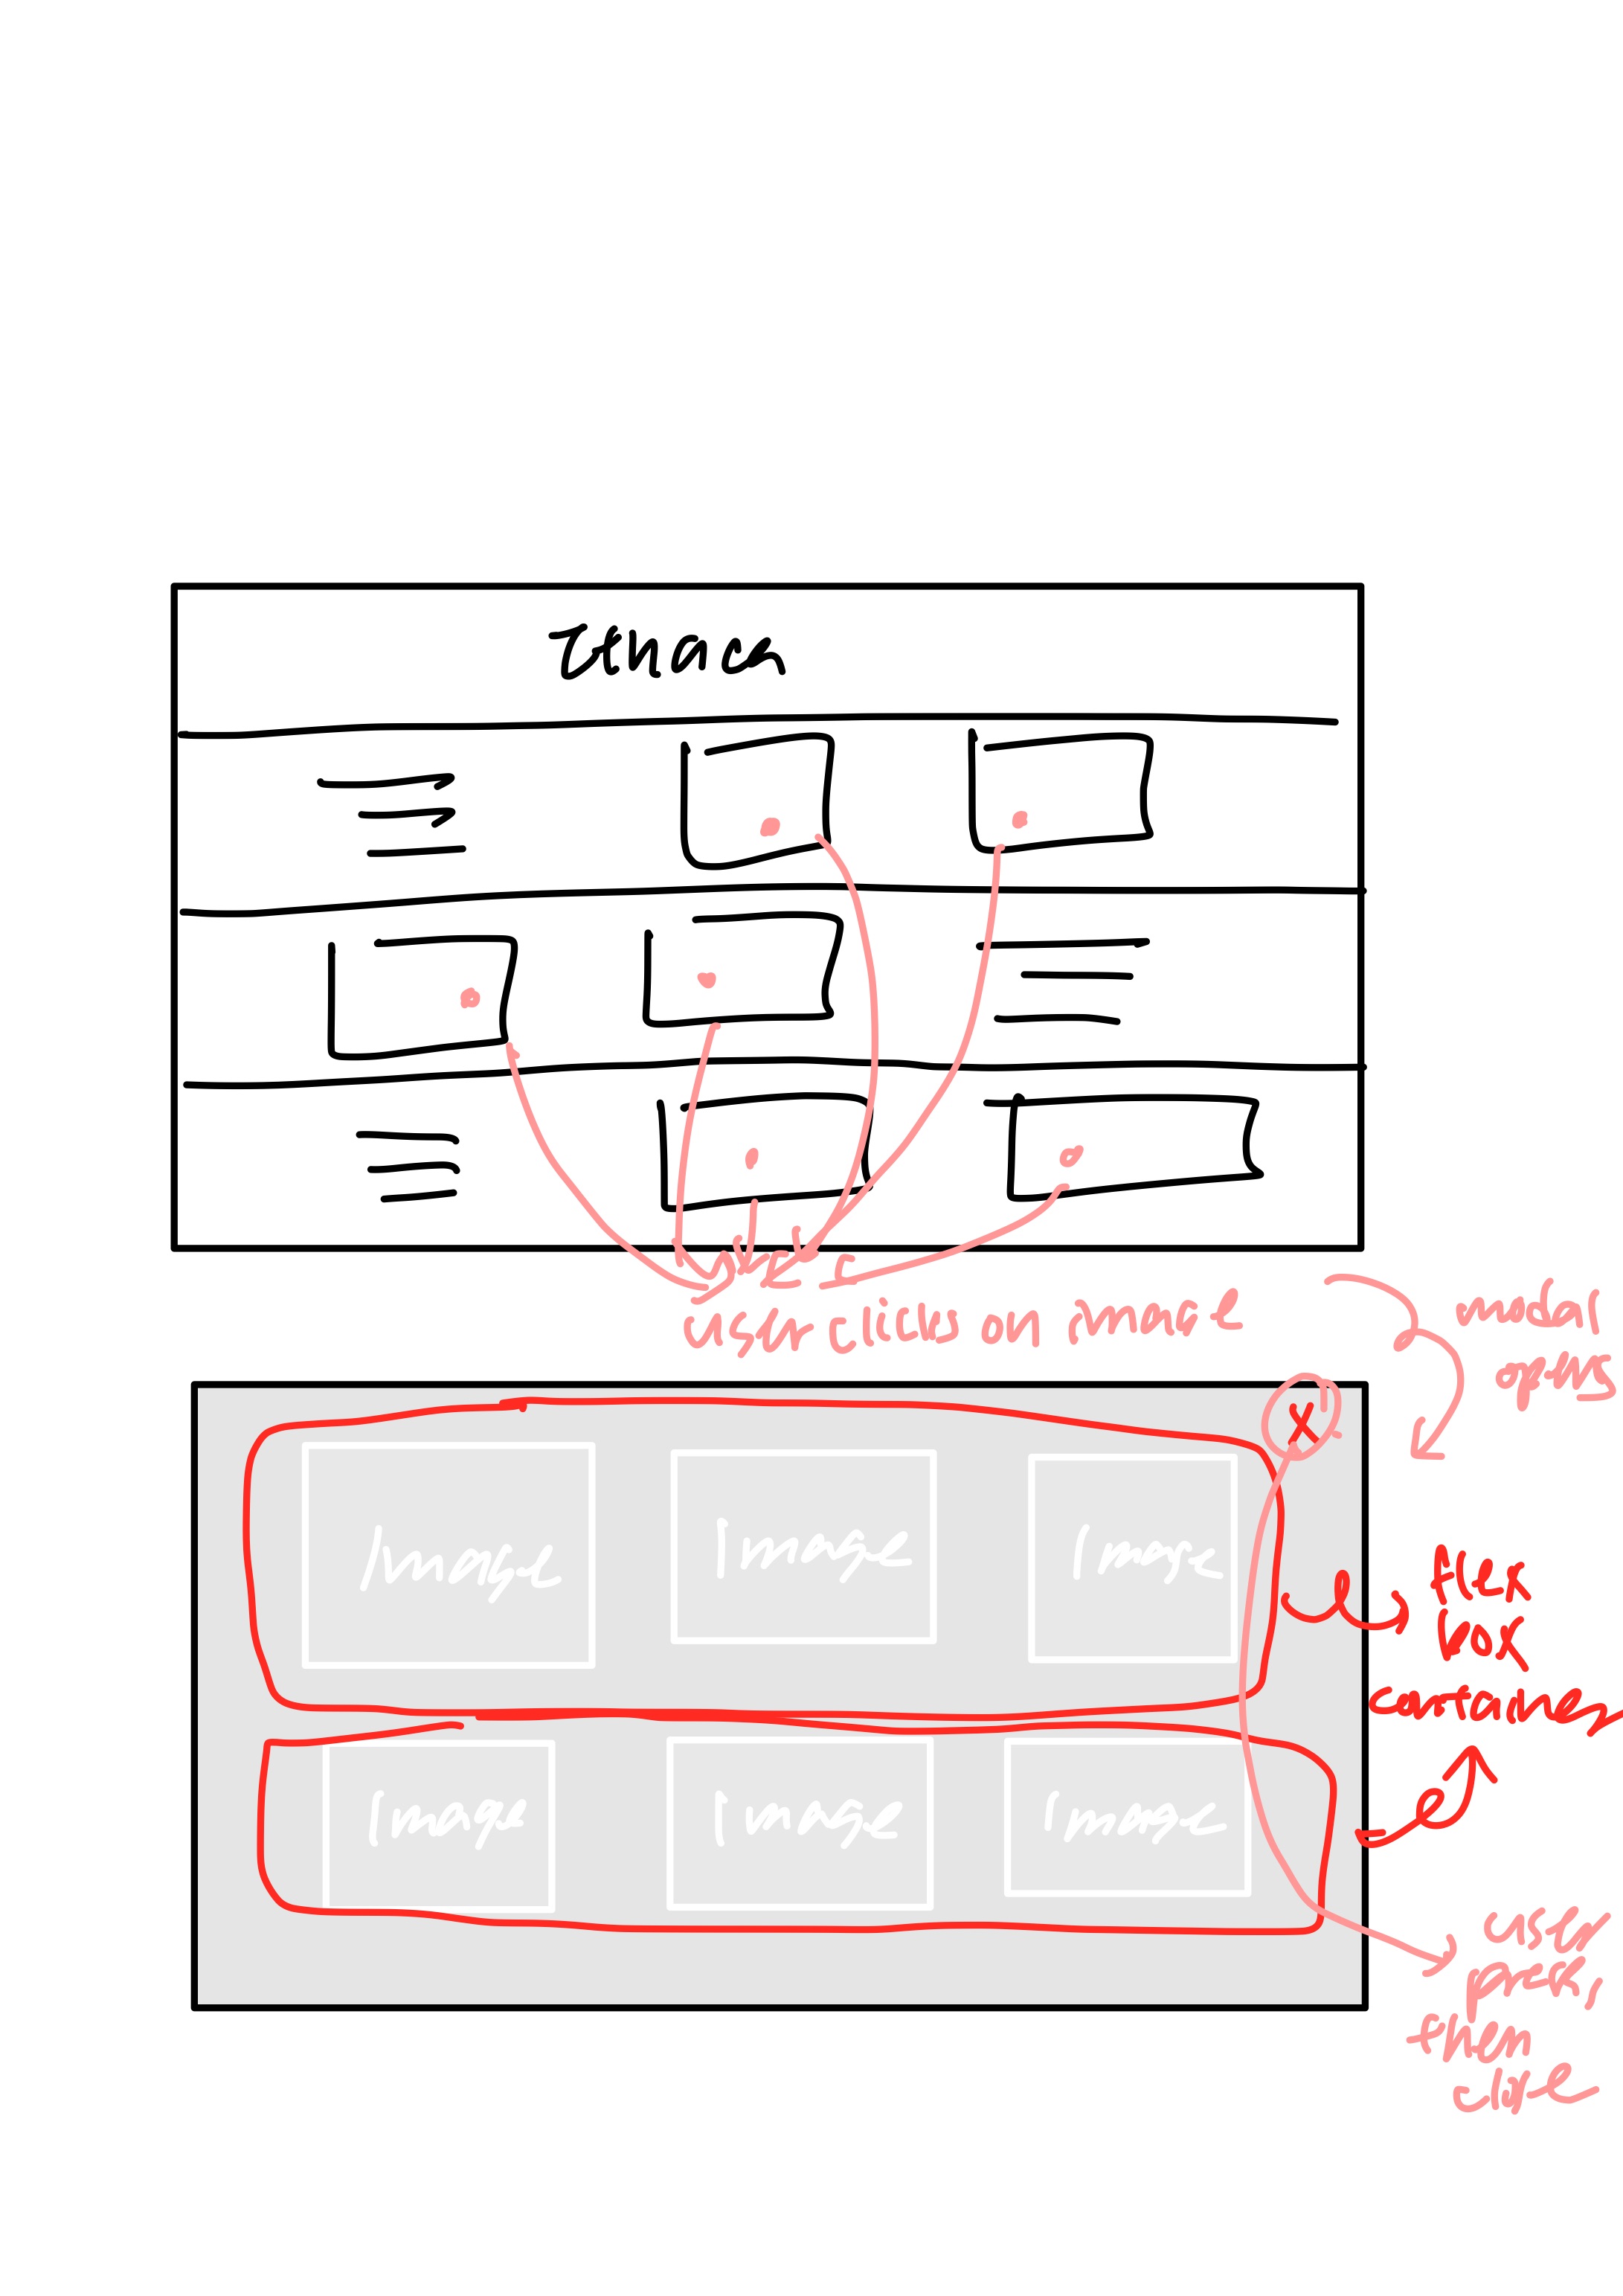 when
user clicks on image
modal
opens
Image
Image
Image
flex
box
container
Image
Image
Image
user
press,
then
close